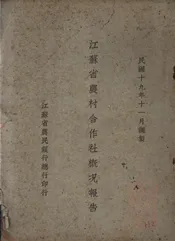 民國十九年十一月編製
江蘇省農村合作社概況報告
江蘇省農民銀行總行印行